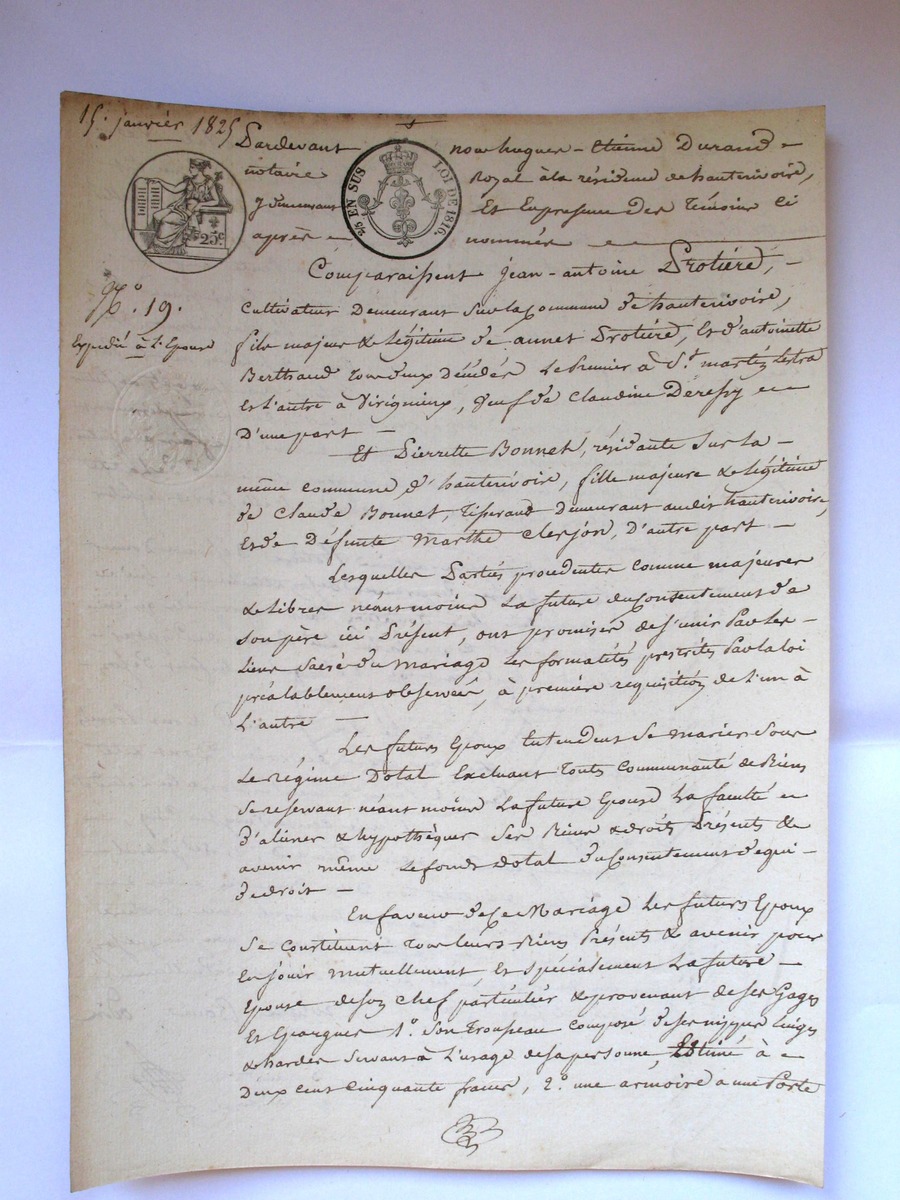 15. janvier 1825
Pardevant nous hugues-Etienne Durand
notaire Royal à la résidence de hauterivoire,
y demeurant Et En presence Des Témoins Ci
après nommés
25c
2/5 EN SUS LOI DE 1816.
N.o 19.
Expedié à L'Epouse
Comparaissent jean-antoine Drotiere,
Cultivateur Demeurant Sur la Commune de hauterivoire,
fils majeur & légitime de annet Drotiere, Et d'antoinette
Berthaud tous deux Décédés Le Premier à St. martin Lestra
Et L'autre à Virignieux, Veuf de Claudine
D'une part
Et Pierrette Bonnet, résidante Sur la
même commune d'hauterivoire, fille majeure & légitime
de Claude Bonnet, Tisserand demeurant audit hauterivoire,
Et de Défunte Marthe Clerjon, D'autre part
Lesquelles Parties procedentes Comme majeures
& Libres néantmoins La future du Consentement de
Son père ici Présent, ont promises de s'unir Par les
Liens Sacré du Mariage Les formalités prescrites Par la loi
préalablement observées, à première requisition de L'un à
L'autre
Les futurs Epoux Entendent Se marier Sous
Le régime Dotal Excluant Toutes Communauté de Biens
Se reservant néantmoins La future Epouse La faculté
d'aliener & hypothéquer Ses Biens & droits Présents &
avenir même Le fonds dotal du Consentement de qui
de droit
En faveur de Ce Mariage Les futurs Epoux
Se Constituent tous Leurs Biens Présents & avenir pour
En jouir mutuellement Et Spécialement La future
Epouse de Son Chef particulier & provenant de Ses Gages
Et Epargnes 1.o Son Trousseau composé de Ses nippes Linges
& hardes Servant à L'usage de Sa personne, Estimé à
Deux Cent Cinquante francs, 2.o une armoire a une Porte